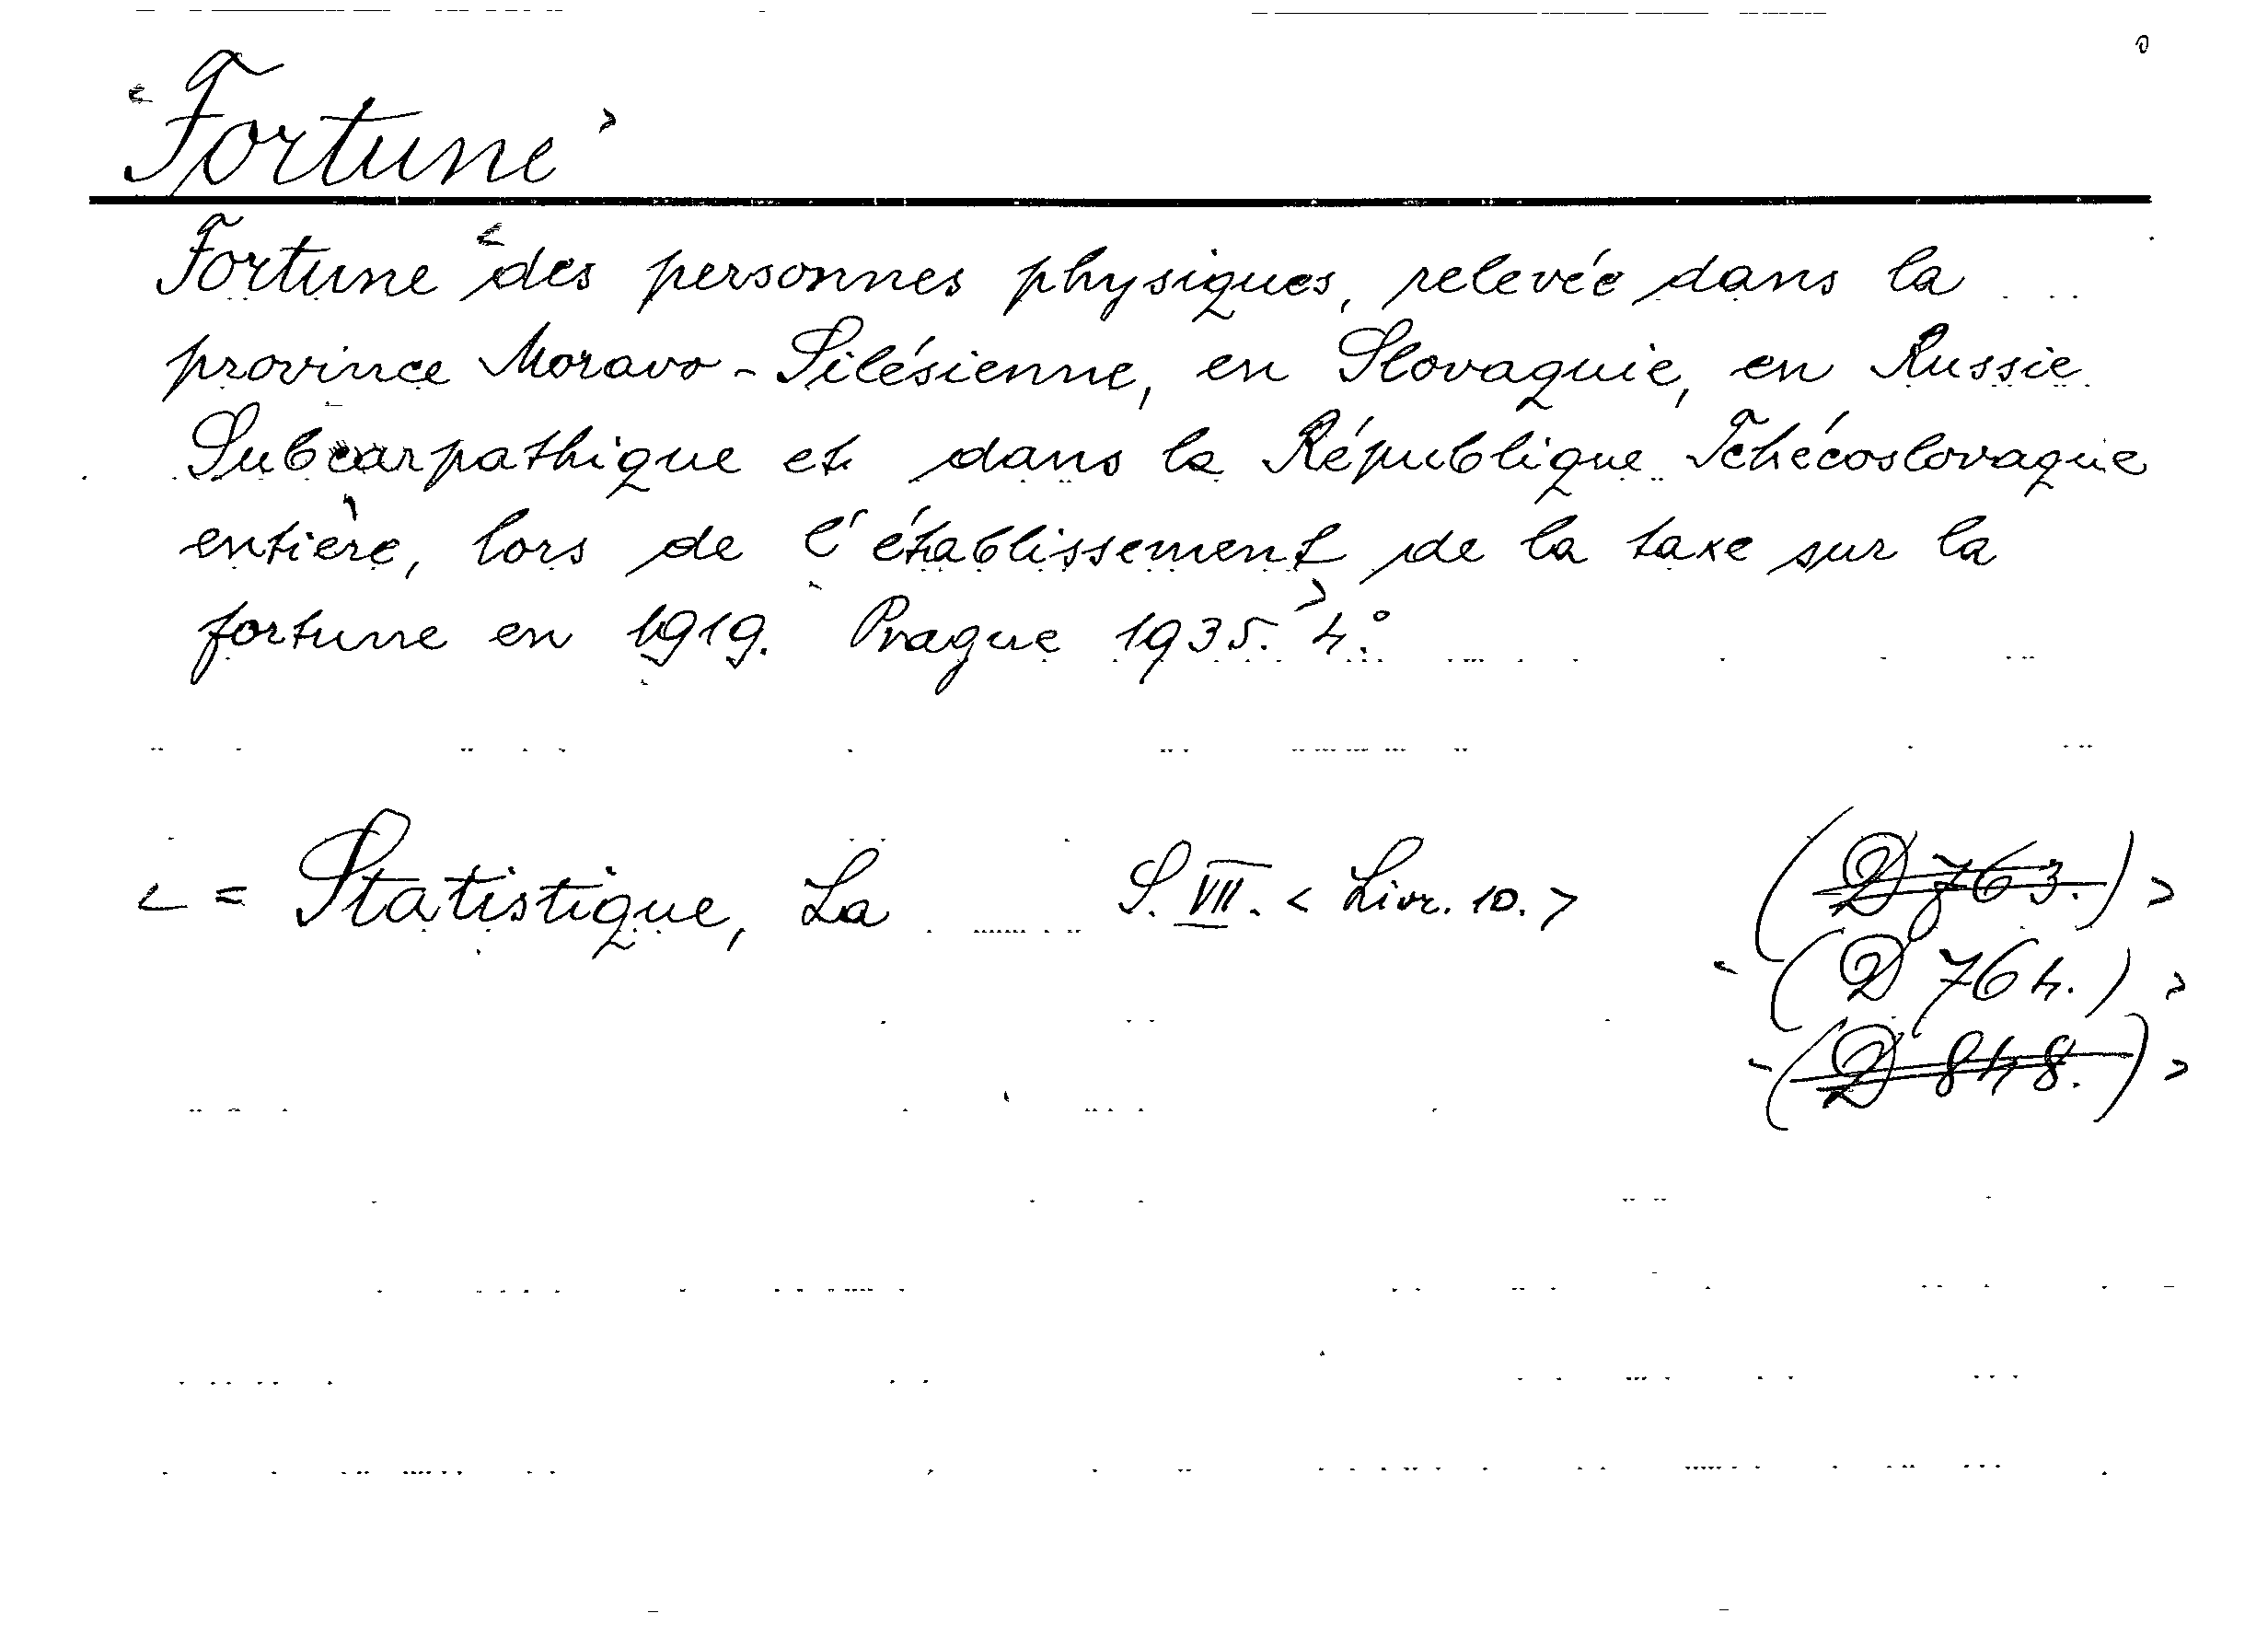 <Fortune>
Fortune <des personnes physiques, relevée dans la
province Moravo-Silésienne, en Slovaquie, en Russie
Subcarpathique et dans la République Tchécoslovaque
entière, lors de l'établissement de la taxe sur la
fortune en 1919. Prague 1935.> 4°.
<= Statistique, La S. VII. <Livr. 10.> (D 763.)>
<(D 764.)>
<(D 848.)>